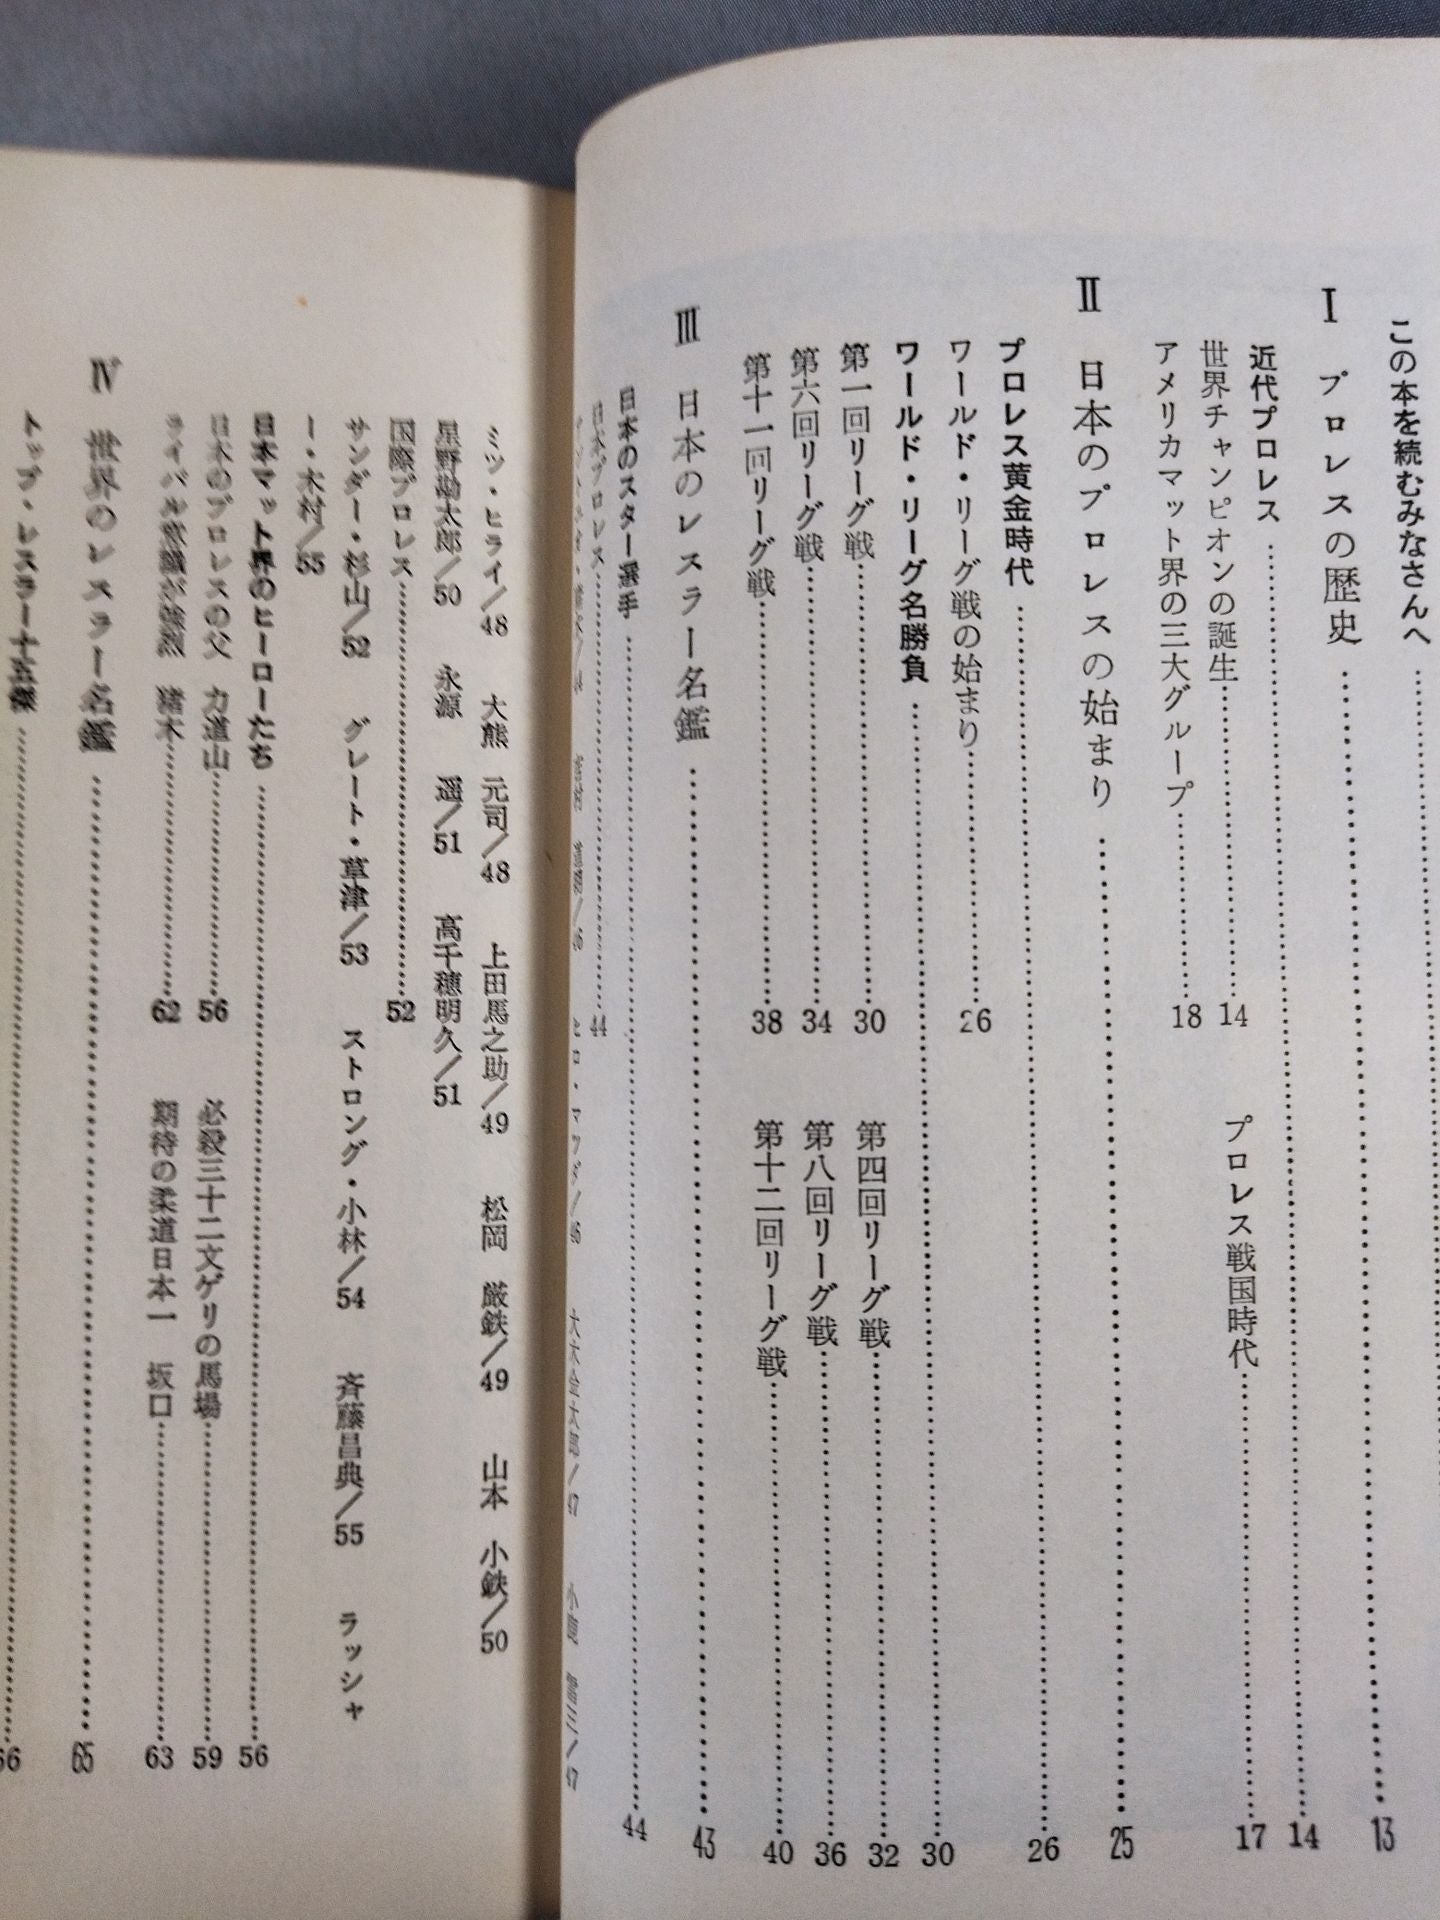 この本を続むみなさんへ
I プロレスの歴史 13
近代プロレス 14
世界チャンピオンの誕生 14 プロレス戦国時代 17
アメリカマット界の三大グループ 18
II 日本のプロレスの始まり 25
プロレス黄金時代 26
ワールド・リーグ戦の始まり 26
ワールド・リーグ名勝負 30
第一回リーグ戦 30 第四回リーグ戦 32
第六回リーグ戦 34 第八回リーグ戦 36
第十一回リーグ戦 38 第十二回リーグ戦 40
III 日本のレスラー名鑑 43
日本のスター選手 44
日本プロレス 44
ヒロ・マツダ/46 大木金太郎/47
ミツ・ヒライ/48 大熊 元司/48 上田馬之助/49 松岡 厳鉄/49 山本 小鉄/50
星野勘太郎/50 永源 遥/51 高千穂明久/51
国際プロレス 52
サンダー・杉山/52 グレート・草津/53 ストロング・小林/54 斉藤昌典/55 ラッシャ
ー・木村/55
日本マット界のヒーローたち 56
日本のプロレスの父 力道山 56 必殺三十二文ゲリの馬場 59
ライバル意識が強烈 猪木 62 期待の柔道日本一 坂口 63
IV 世界のレスラー名鑑 65
トップ・レスラー十五傑 66